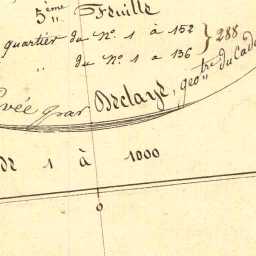 5ème Feuille
quartier du No. 1 à 152 } 288
" du No. 1 à 136
par Delaye, géotre du Cada
1 à 1000
0